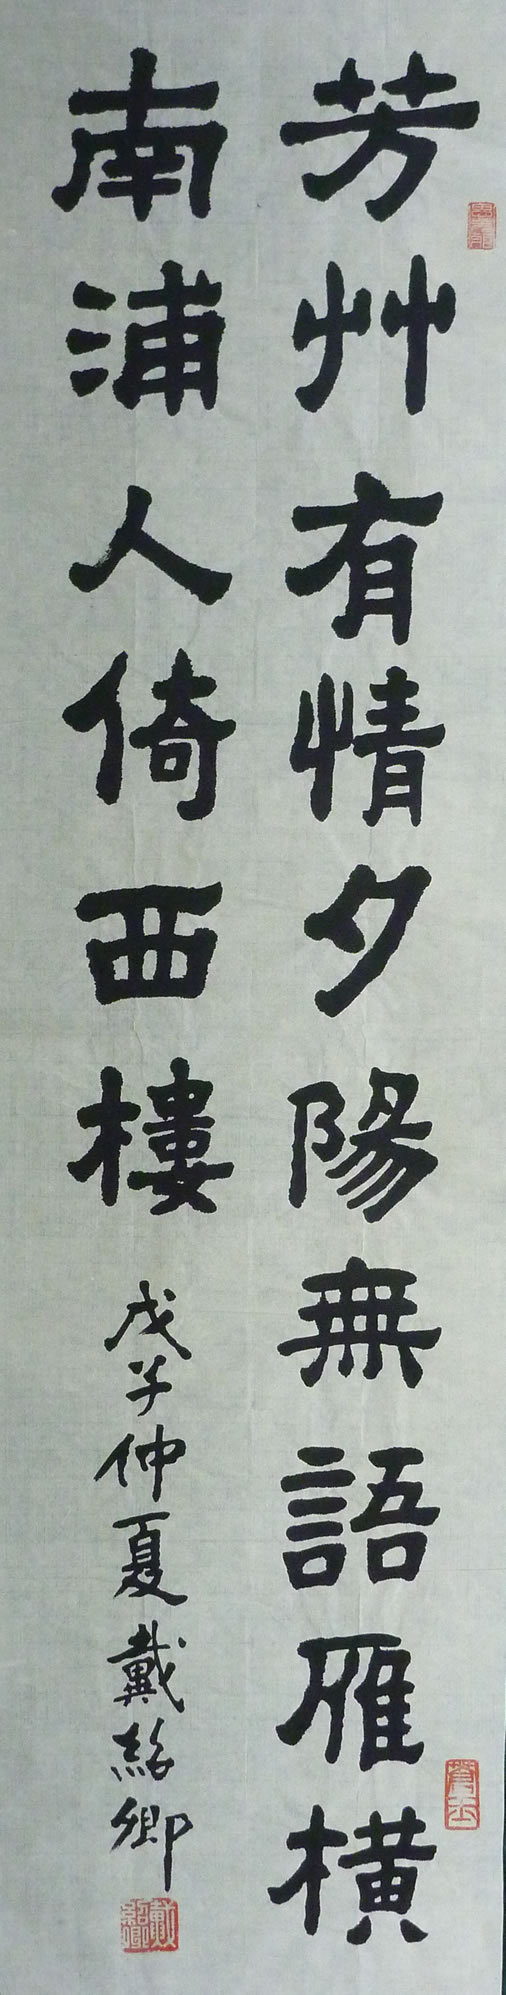 芳艸有情夕陽無語雁橫
南浦人倚西樓
戊子仲夏戴紹卿
戴紹卿